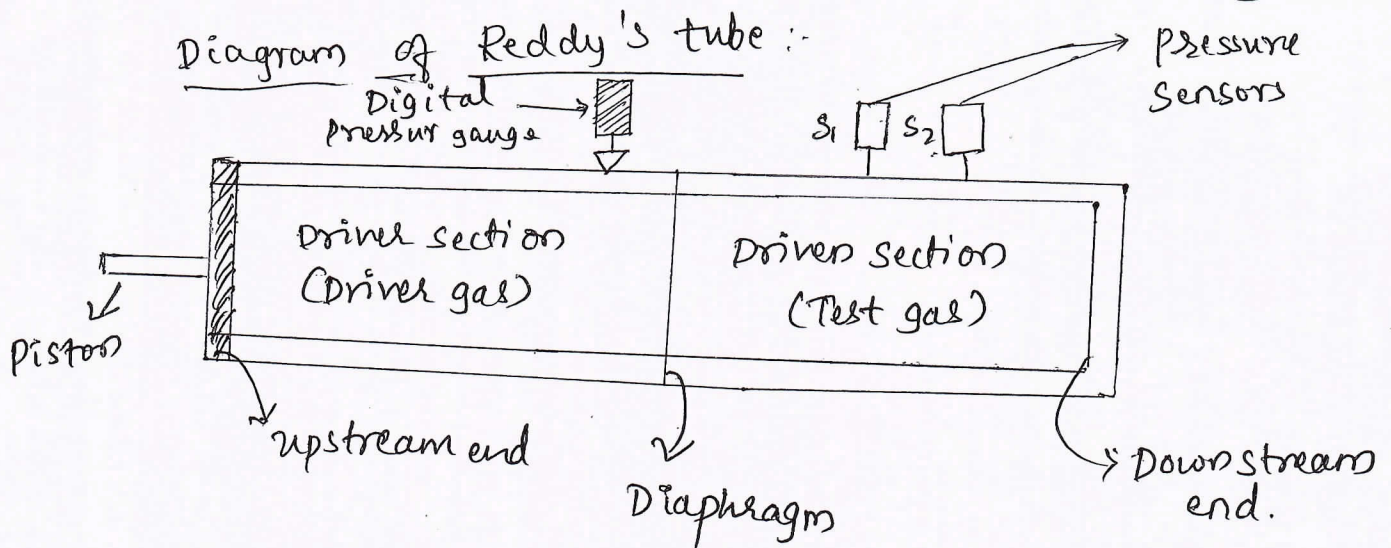 Diagram of Reddy's tube :-
Pressure
Sensors
Digital
Pressur gauge
S1
S2
Driver section
(Driver gas)
Driven section
(Test gas)
Piston
upstream end
Diaphragm
Down stream
end.